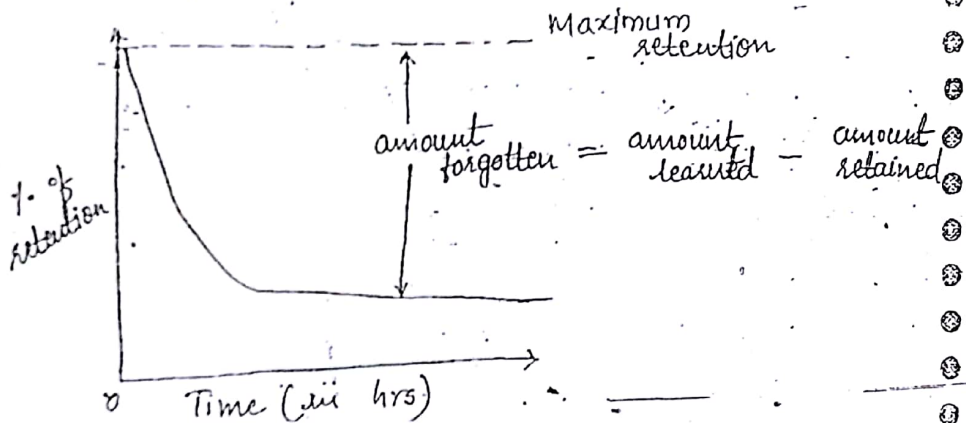 Maximum
retention
amount
forgotten = amount
learnt - amount
retained
% of
retention
0
Time (in hrs)